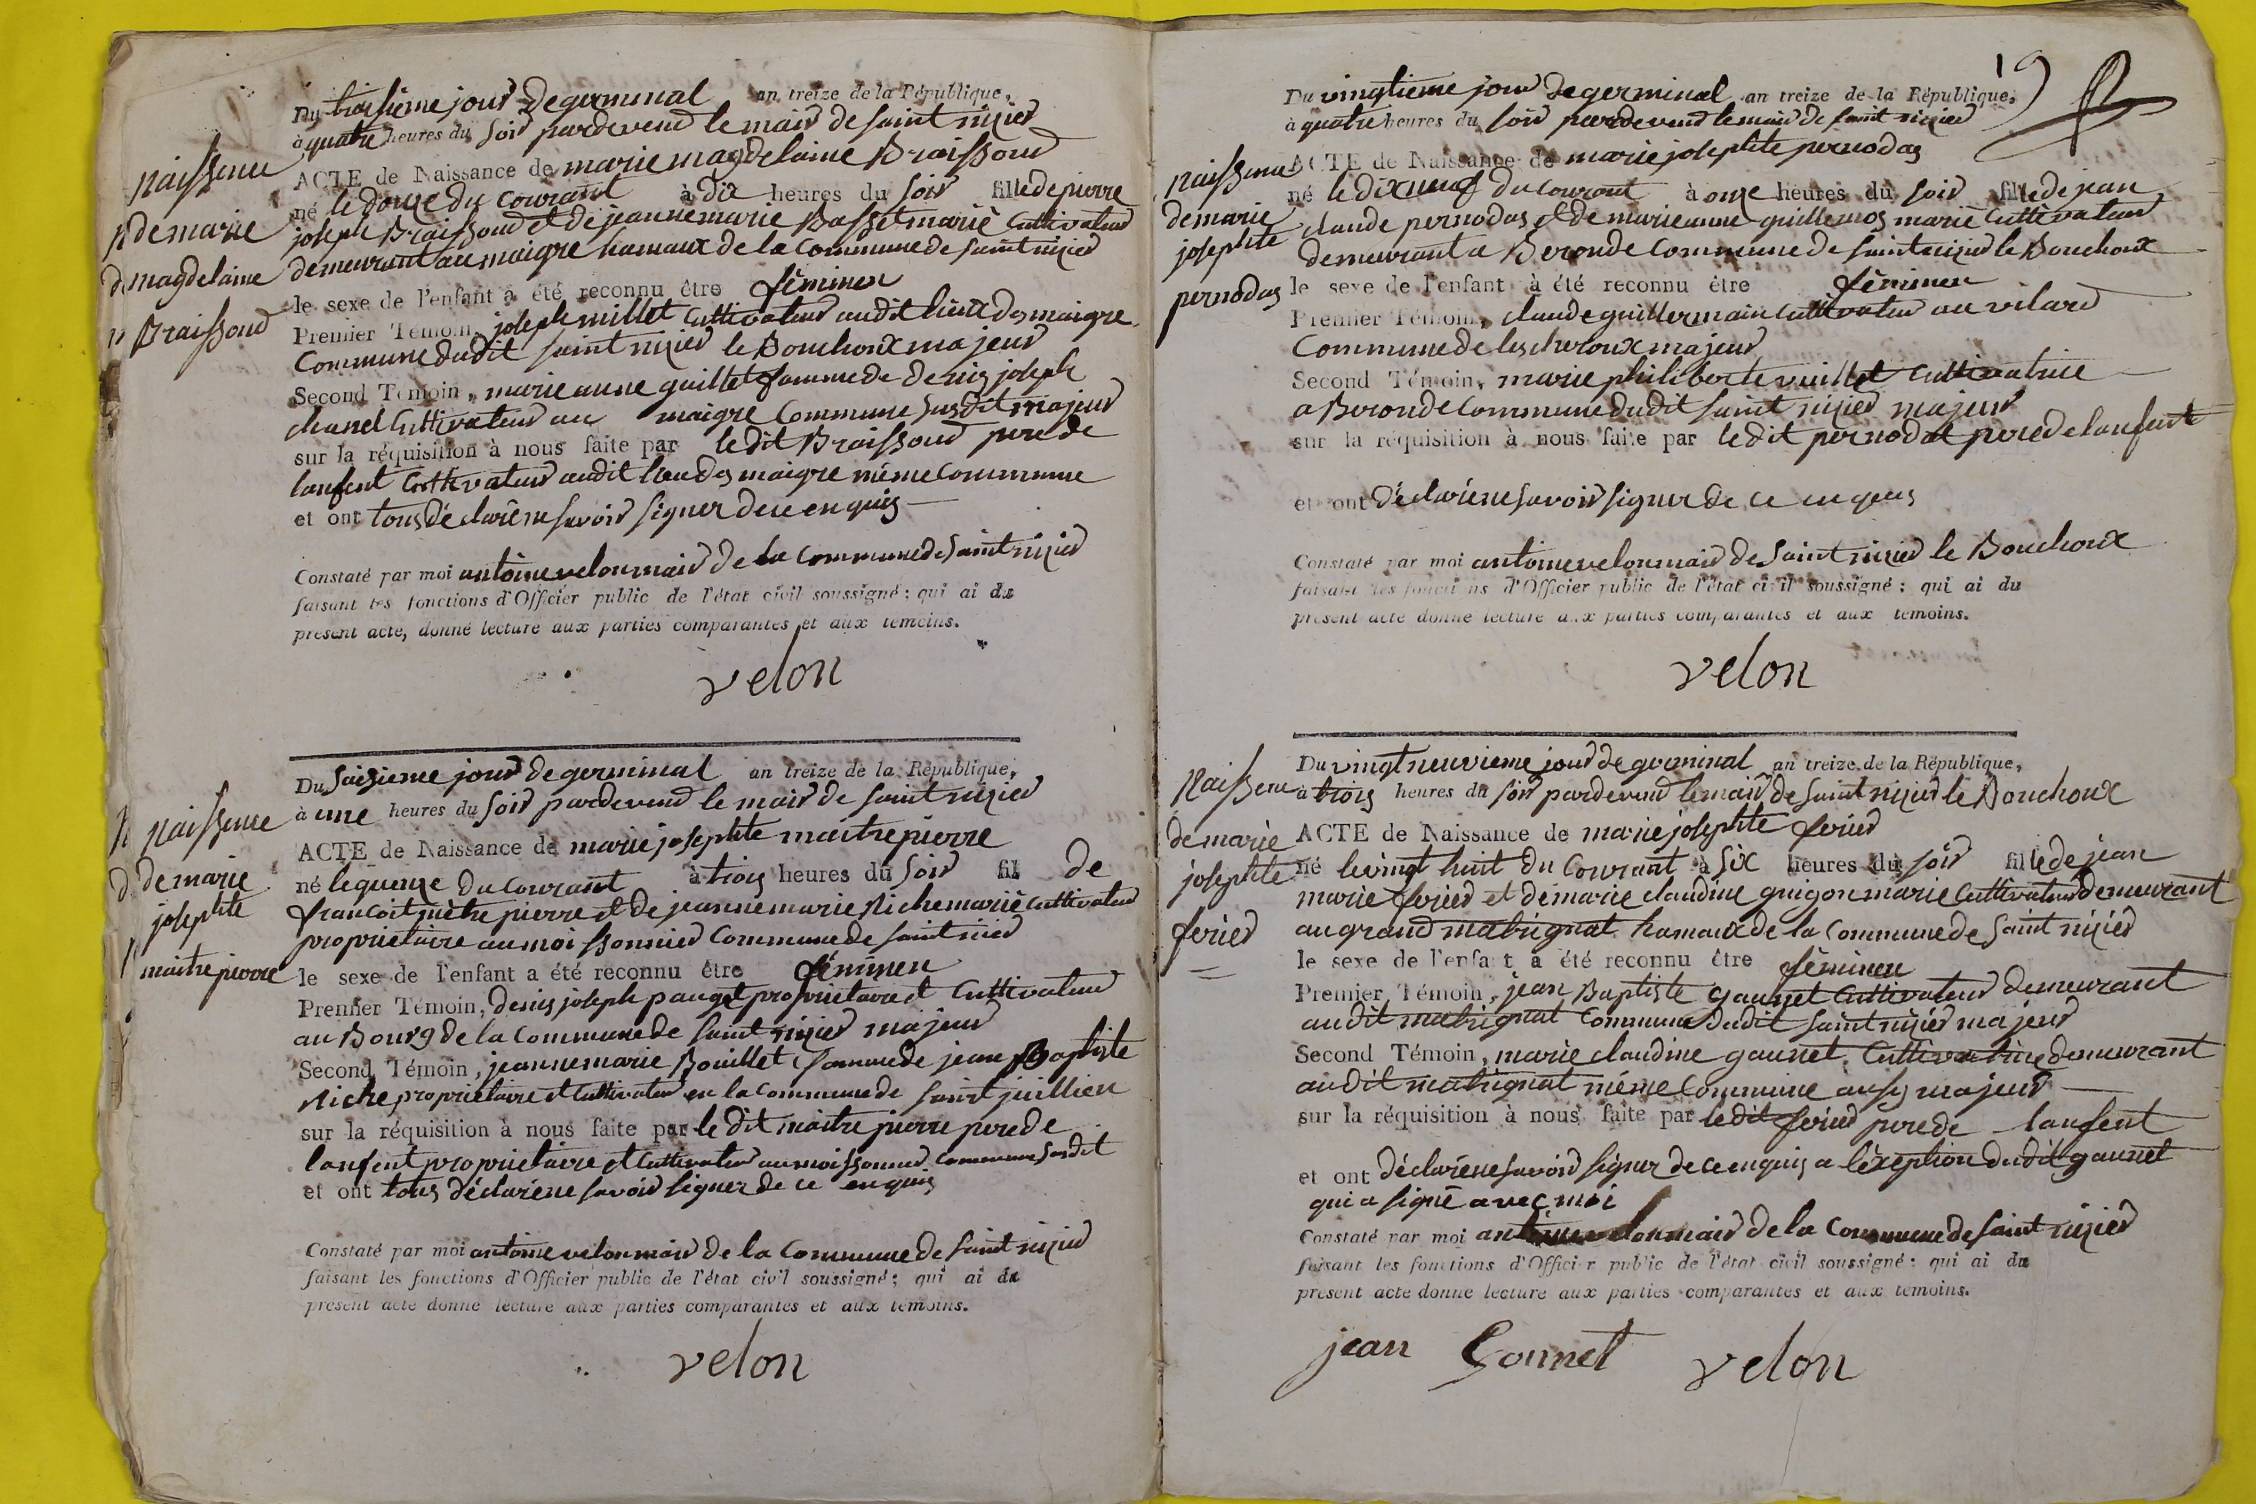 Du traisieme jour de germinal an treize de la République,
à quatre heures du soir pardevend le mair de saint nizier
naissence
ACTE de Naissance de marie magdelaine Braissoud
né le douze du courant à dix heures du soir fille de pierre
de marie
joseph Braissoud et de jeanne marie Basset marié Cultivateur
magdelaine
demeurant au maigre hamaux de la Commune de saint nizier
le sexe de l'enfant a été reconnu être féminen
Braissoud
Premier Témoin, joseph millet Cultivateur audit lieux des maigre
Commune dudit saint nizier le Bouchoux majeur
Second Témoin, marie anne guillet famme de denis joseph
chanel Cultivateur au maigre Commune susdit majeur
sur la réquisition à nous faite par ledit Braissoud pere de
lanfent Cultivateur audit lieu des maigre même Commune
et ont tous déclaré ne savoir signer de ce enquis
Constaté par moi antoine velon mair de la Commune de Saint nizier
faisant les fonctions d'Officier public de l'état civil soussigné: qui ai du
présent acte, donné lecture aux parties comparantes et aux témoins.
velon
Du Saizieme jour de germinal an treize de la République,
à une heures du soir pardevend le mair de saint nizier
naissence
ACTE de Naissance de marie josephte maitrepierre
de marie
né le quenze du Courant à trois heures du soir fil de
josephte
francoit mètre pierre et de jeanne marie Niche marié Cultivateur
proprietaire au moissonnier Commune de saint nier
maitre pierre
le sexe de l'enfant a été reconnu être féminen
Premier Témoin, denis joseph pauget proprietaire et Cultivateur
au Bourg de la Commune de saint nizier majeur
Second Témoin, jeanne marie Bouillet famme de jean Baptiste
Niche proprietaire et Cultivateur en la Commune de saint juillien
sur la réquisition à nous faite par ledit maitre pierre pere de
lanfent proprietaire et Cultivateur au moissonnier Commune susdit
et ont tous déclaré ne savoir signer de ce enquis
Constaté par moi antoine velon mair de la Commune de Saint nizier
faisant les fonctions d'Officier public de l'état civil soussigné; qui ai du
présent acte donné lecture aux parties comparantes et aux témoins.
velon
19
Du vingtieme jour de germinal an treize de la République,
à quatre heures du soir pardevend le mair de saint nizier
naissence
ACTE de Naissance de marie josephte pernodas
né le dixneuf du courant à onze heures du soir fille de jean
de marie
claude pernodas et de marie anne guillemos marié Cultivateur
josephte
demeurant a Beronde Commune de saint nizier le Bouchoux
pernodas
le sexe de l'enfant à été reconnu être féminen
Premier Témoin, claude guillermain Cultivateur au vilard
Commune de lescheroux majeur
Second Témoin, marie philiberte vuillet Cultivatrice
a Beronde Commune dudit saint nizier majeur
sur la réquisition à nous faite par ledit pernodat pere de lanfent
et ont déclaré ne savoir signer de ce enquis
Constaté par moi antoine velon mair de Saint nizier le Bouchoux
faisant les fonctions d'Officier public de l'état civil soussigné; qui ai du
présent acte donné lecture aux parties comparantes et aux témoins.
velon
Du vingt neuvieme jour de germinal an treize de la République,
naissence
à trois heures du soir pardevend le mair de saint nizier le Bouchoux
de marie
ACTE de Naissance de marie josephte ferier
josephte
né le vingt huit du Courant à six heures du soir fille de jean
marie ferier et de marie claudine guigon marié Cultivateur demeurant
ferier
au grand mabrignat hamaux de la Commune de saint nizier
le sexe de l'enfant à été reconnu être féminen
Premier Témoin, jean Baptiste gaunet Cultivateur demeurant
audit mabrignat Commune dudit saint nizier majeur
Second Témoin, marie claudine gaunet Cultivatrice demeurant
audit mabrignat même Commune ausy majeur
sur la réquisition à nous faite par ledit ferier pere de lanfent
et ont déclaré ne savoir signer de ce enquis a léxeption dudit gaunet
qui a signé avec moi
Constaté par moi antoine velon mair de la Commune de saint nizier
faisant les fonctions d'Officier public de l'état civil soussigné: qui ai du
présent acte donné lecture aux parties comparantes et aux témoins.
jean Gounet velon